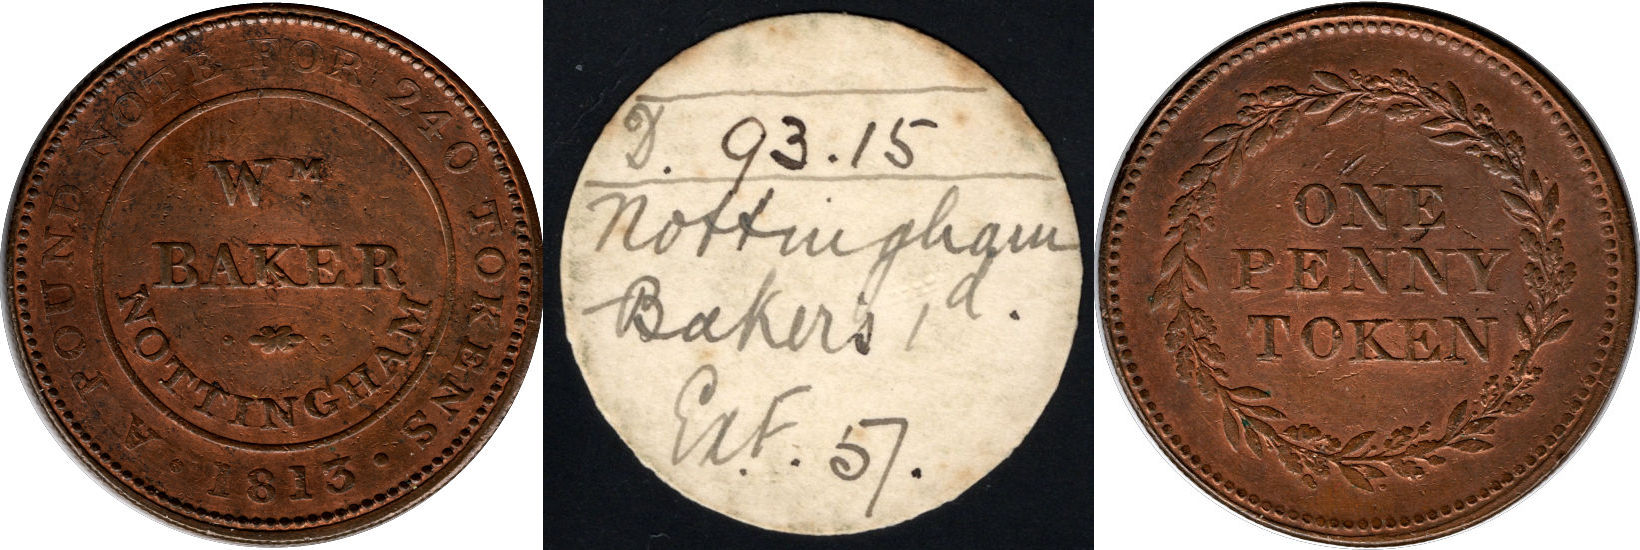 A POUND NOTE FOR 240 TOKENS
Wᴹ
BAKER
NOTTINGHAM
· 1813 ·
D. 93.15
Nottingham
Bakers 1d.
Ex.F. 5/.
ONE
PENNY
TOKEN